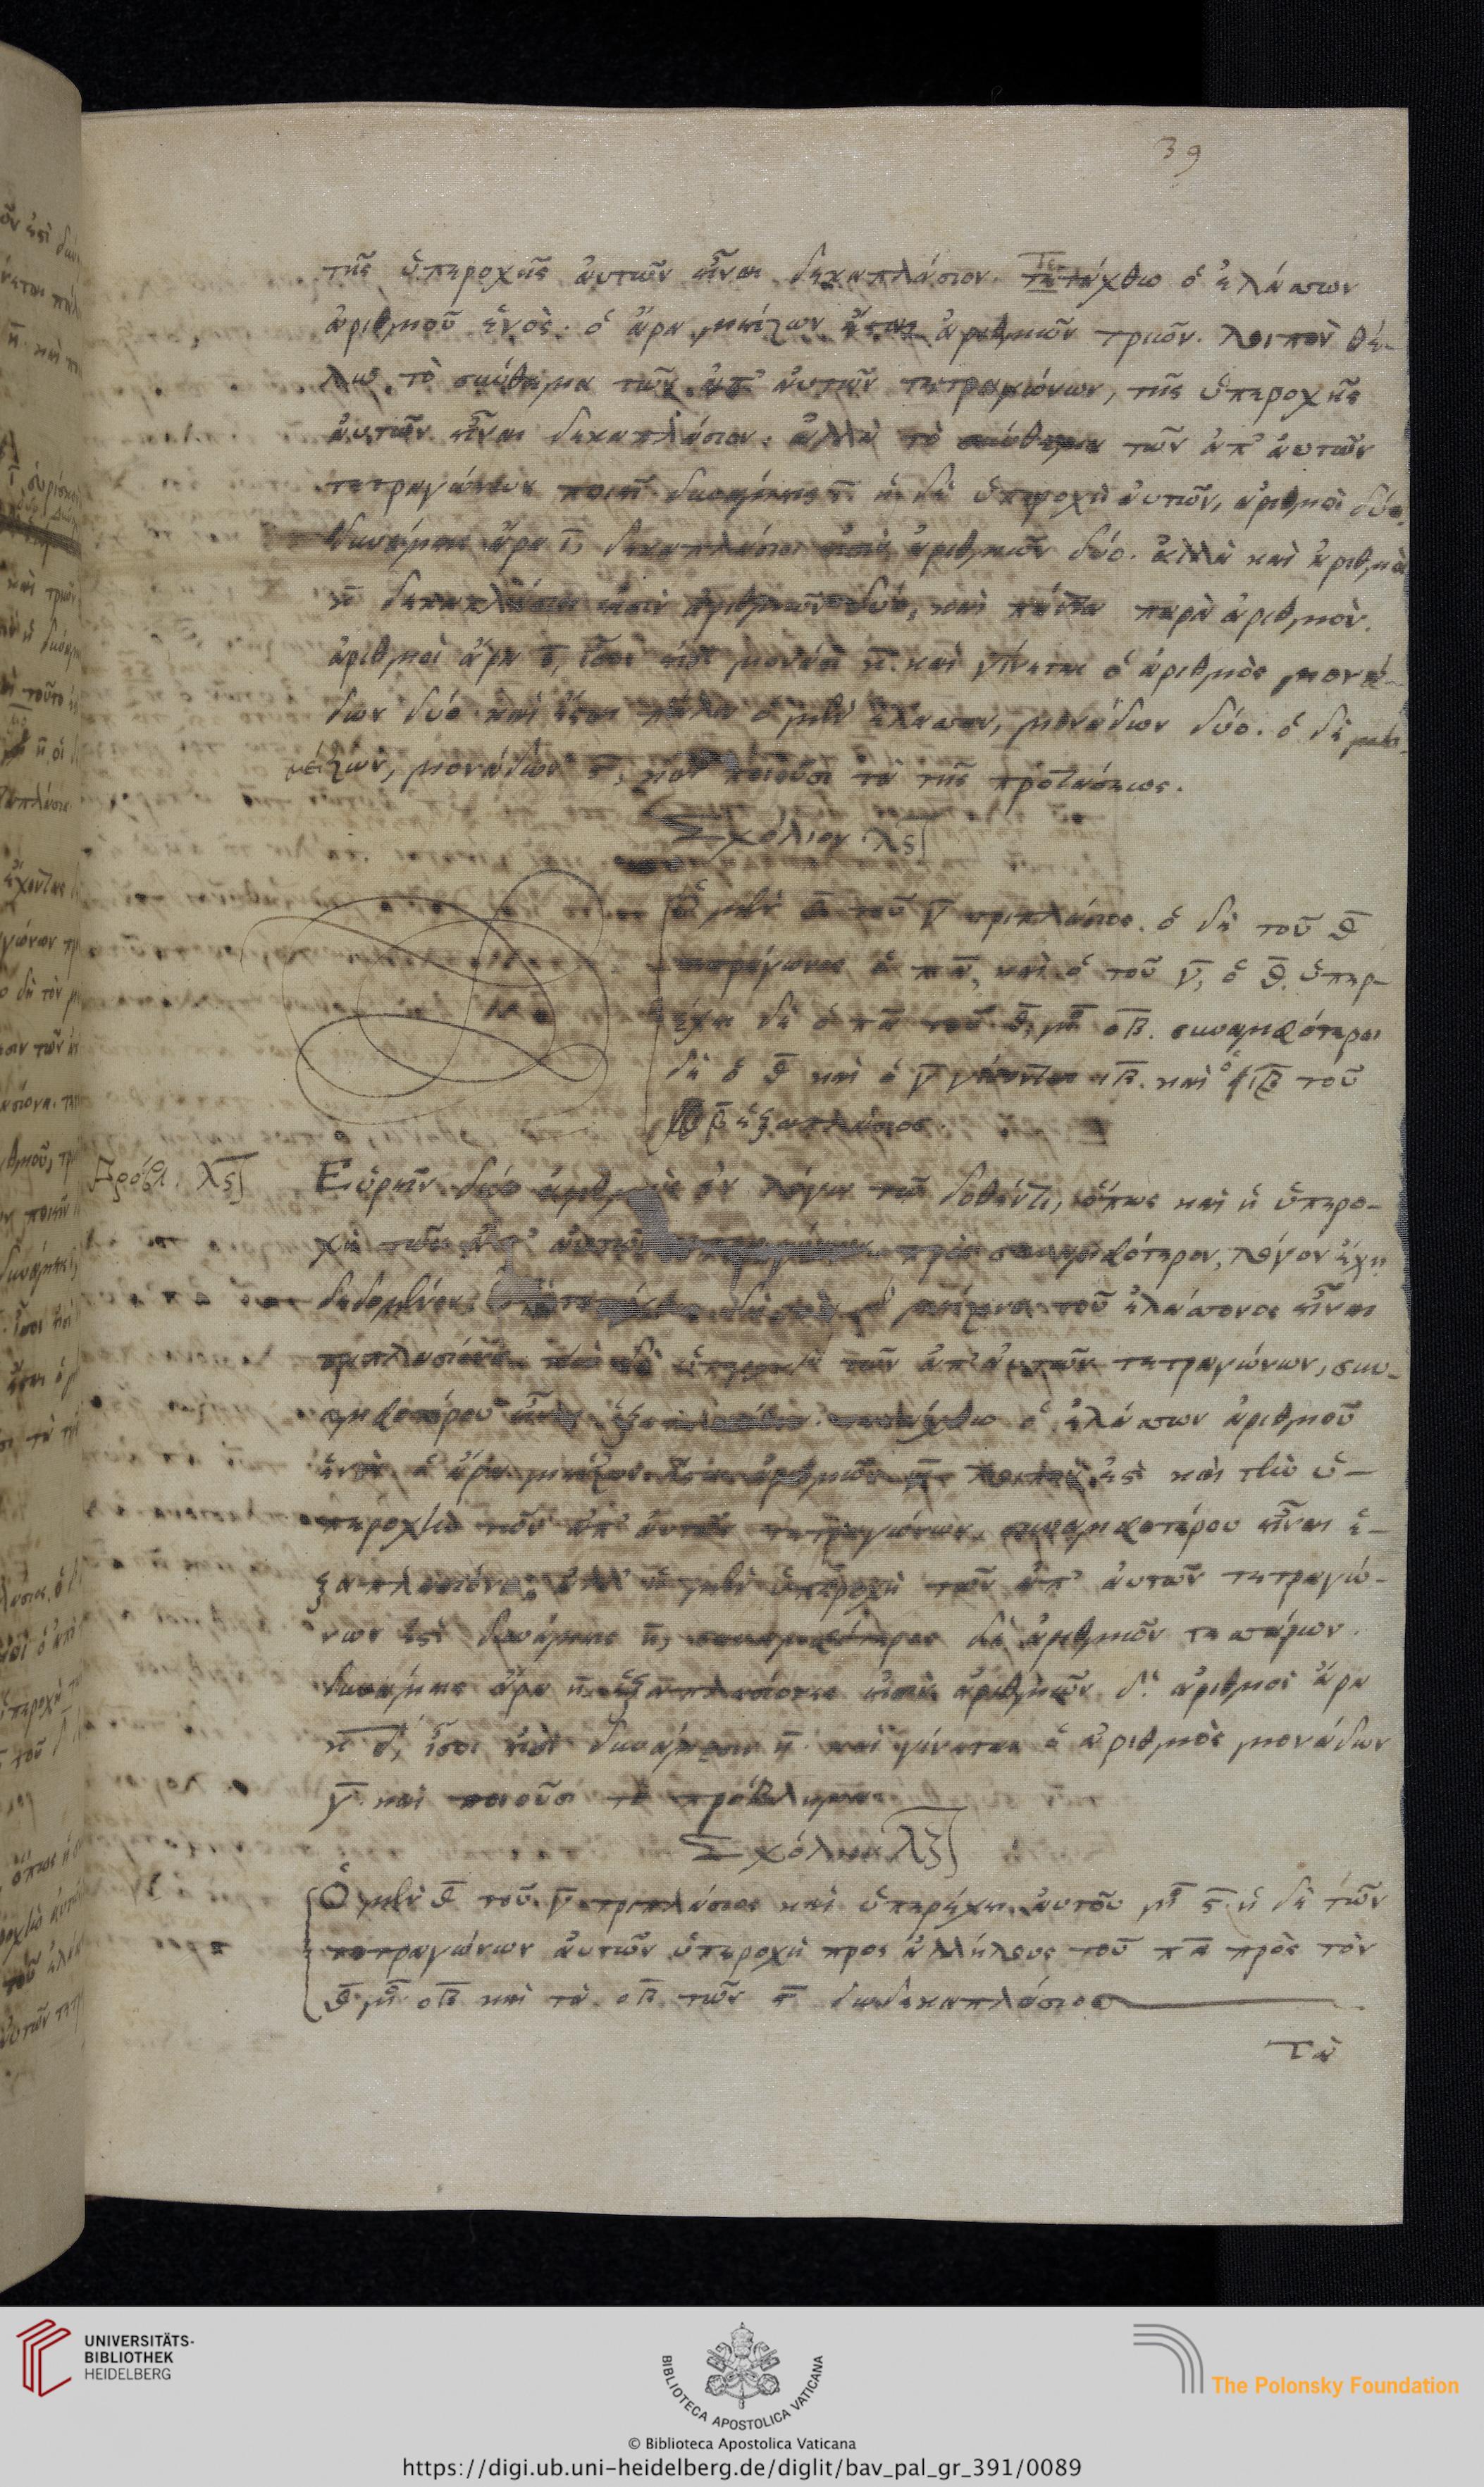 39
τῆς ὑπεροχῆς ἀυτῶν εἶναι δεκαπλάσιον. τετάχθω ὁ ἐλάττων
ἀριθμοῦ ἑνὸς. ὁ ἄρα μείζων ἔσται ἀριθμῶν τριῶν. λοιπὸν θέ-
λω τὸ σύνθεμα τῶν ἀπ' ἀυτῶν τετραγώνων, τῆς ὑπεροχῆς
ἀυτῶν εἶναι δεκαπλάσιον. ἀλλὰ τὸ σύνθεμα τῶν ἀπ' ἀυτῶν
τετραγώνων ποιεῖ δυνάμεις ι̅. ἡ δὲ ὑπεροχὴ ἀυτῶν, ἀριθμοὶ δύο.
δυνάμεις ἄρα ι̅, δεκαπλάσιοι εἰσὶν ἀριθμῶν δύο. ἀλλὰ καὶ ἀριθμοὶ
κ̅ δεκαπλάσιοι εἰσὶν ἀριθμῶν δύο, καὶ πάντα παρὰ ἀριθμὸν.
ἀριθμοὶ ἄρα ι̅, ἴσοι εἰσὶ μονάσι κ̅. καὶ γίνεται ὁ ἀριθμὸς μονά-
δων δύο καὶ ἔσται πάλιν ὁ μὲν ἐλάττων, μονάδων δύο. ὁ δὲ
μείζων, μονάδων ς̅, καὶ ποιοῦσι τὰ τῆς προτάσεως.
Σχόλιον λς
Ὁ μὲν θ̅ τοῦ γ̅ τριπλάσιος. ὁ δὲ τοῦ θ̅
τετράγωνος ὁ πα̅, καὶ ὁ τοῦ γ̅, ὁ θ̅. ὑπερ-
έχει δὲ ὁ πα̅ τοῦ θ̅, μο̅ οβ̅. συναμφότεροι
δὲ ὁ θ̅ καὶ ὁ γ̅ γίνονται ιβ̅. καὶ ὁ τοῦ
ιβ̅ ἑξαπλάσιος.
Πρόβλ. λς
Εὑρεῖν δύο ἀριθμοὺς ἐν λόγῳ τῷ δοθέντι, ὅπως καὶ ἡ ὑπερο-
χὴ τῶν ἀπ' ἀυτῶν τετραγώνων πρὸς συναμφότερον, λόγον ἔχῃ
δεδομένον. μείζονα τοῦ ἐλάττονος εἶναι
τριπλασίονα τῶν ἀπ' ἀυτῶν τετραγώνων, συν-
αμφοτέρου εἶναι ἑξαπλασίονα. τετάχθω ὁ ἐλάττων ἀριθμοῦ
ἑνὸς ὁ ἄρα μείζων ἔσται ἀριθμῶν γ̅. λοιπὸν ἐστὶ καὶ τὴν ὑ-
περοχὴν τῶν ἀπ' ἀυτῶν τετραγώνων, συναμφοτέρου εἶναι ἑ-
ξαπλασίονα. ἀλλ' ἡ μὲν ὑπεροχὴ τῶν ἀπ' ἀυτῶν τετραγώ-
νων ἐστὶ δυνάμεις η̅, συναμφότερος δὲ ἀριθμῶν τεσσάρων.
δυνάμεις ἄρα η̅ ἑξαπλασίονες εἰσὶν ἀριθμῶν δ̅. ἀριθμοὶ ἄρα
κδ̅, ἴσοι εἰσὶ δυνάμεσιν η̅. καὶ γίνεται ὁ ἀριθμὸς μονάδων
γ̅. καὶ ποιοῦσι τὸ πρόβλημα
Σχόλιον λζ
Ὁ μὲν θ̅ τοῦ γ̅ τριπλάσιος καὶ ὑπερέχει ἀυτοῦ μο̅ ς̅. ἡ δὲ τῶν
τετραγώνων ἀυτῶν ὑπεροχὴ προς ἀλλήλους τοῦ πα̅ πρὸς τὸν
θ̅ μο̅ οβ̅ καὶ τὰ οβ̅ τῶν ς̅ δωδεκαπλάσιος
Τὰ
UNIVERSITÄTS-
BIBLIOTHEK
HEIDELBERG
BIBLIOTECA APOSTOLICA VATICANA
The Polonsky Foundation
© Biblioteca Apostolica Vaticana
https://digi.ub.uni-heidelberg.de/diglit/bav_pal_gr_391/0089